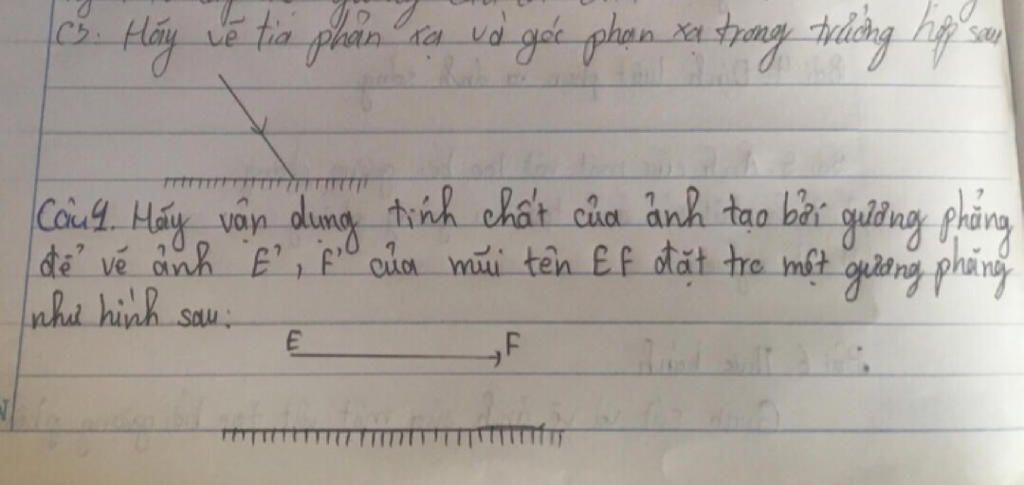 C3. Hãy vẽ tia phản xạ và góc phản xạ trong trường hợp sau
Câu 4. Hãy vận dụng tính chất của ảnh tạo bởi gương phẳng
để vẽ ảnh E', F' của mũi tên EF đặt trc một gương phẳng
như hình sau:
E F